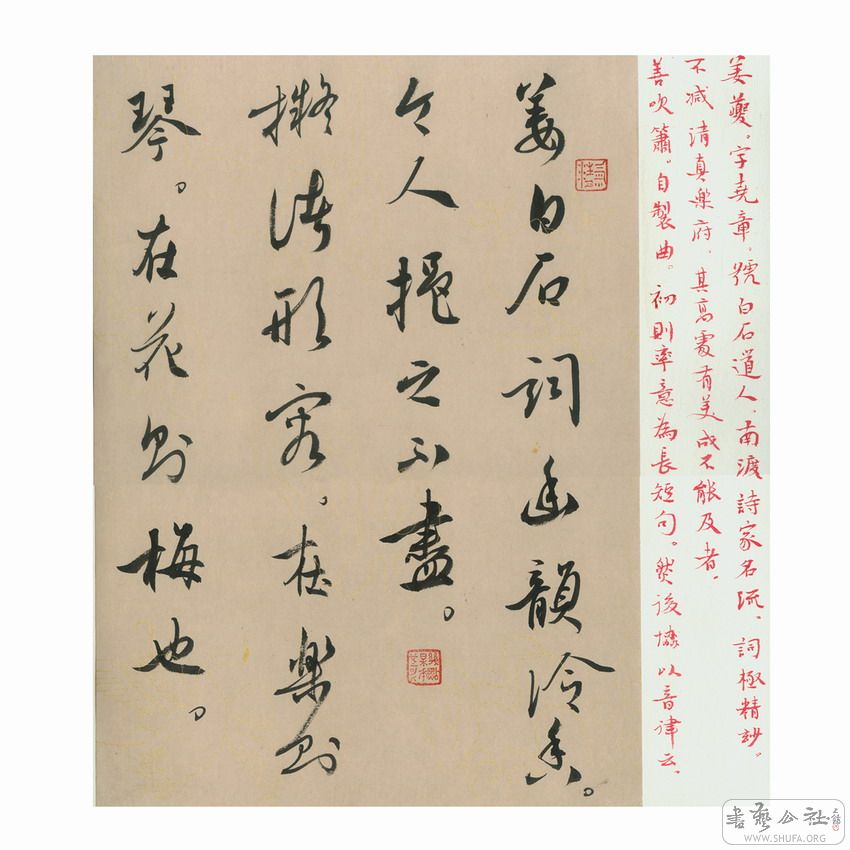 姜夔。字堯章。號白石道人、南渡詩家名流、詞極精玅。
不減清真樂府、其高處有美成不能及者、
善吹簫。自製曲。初則率意為長短句。然後恊以音律云、
姜白石詞幽韻冷香。
令人挹之不盡。
擬諸形容。在樂則
琴。在花則梅也。
書藝公社
WWW.SHUFA.ORG